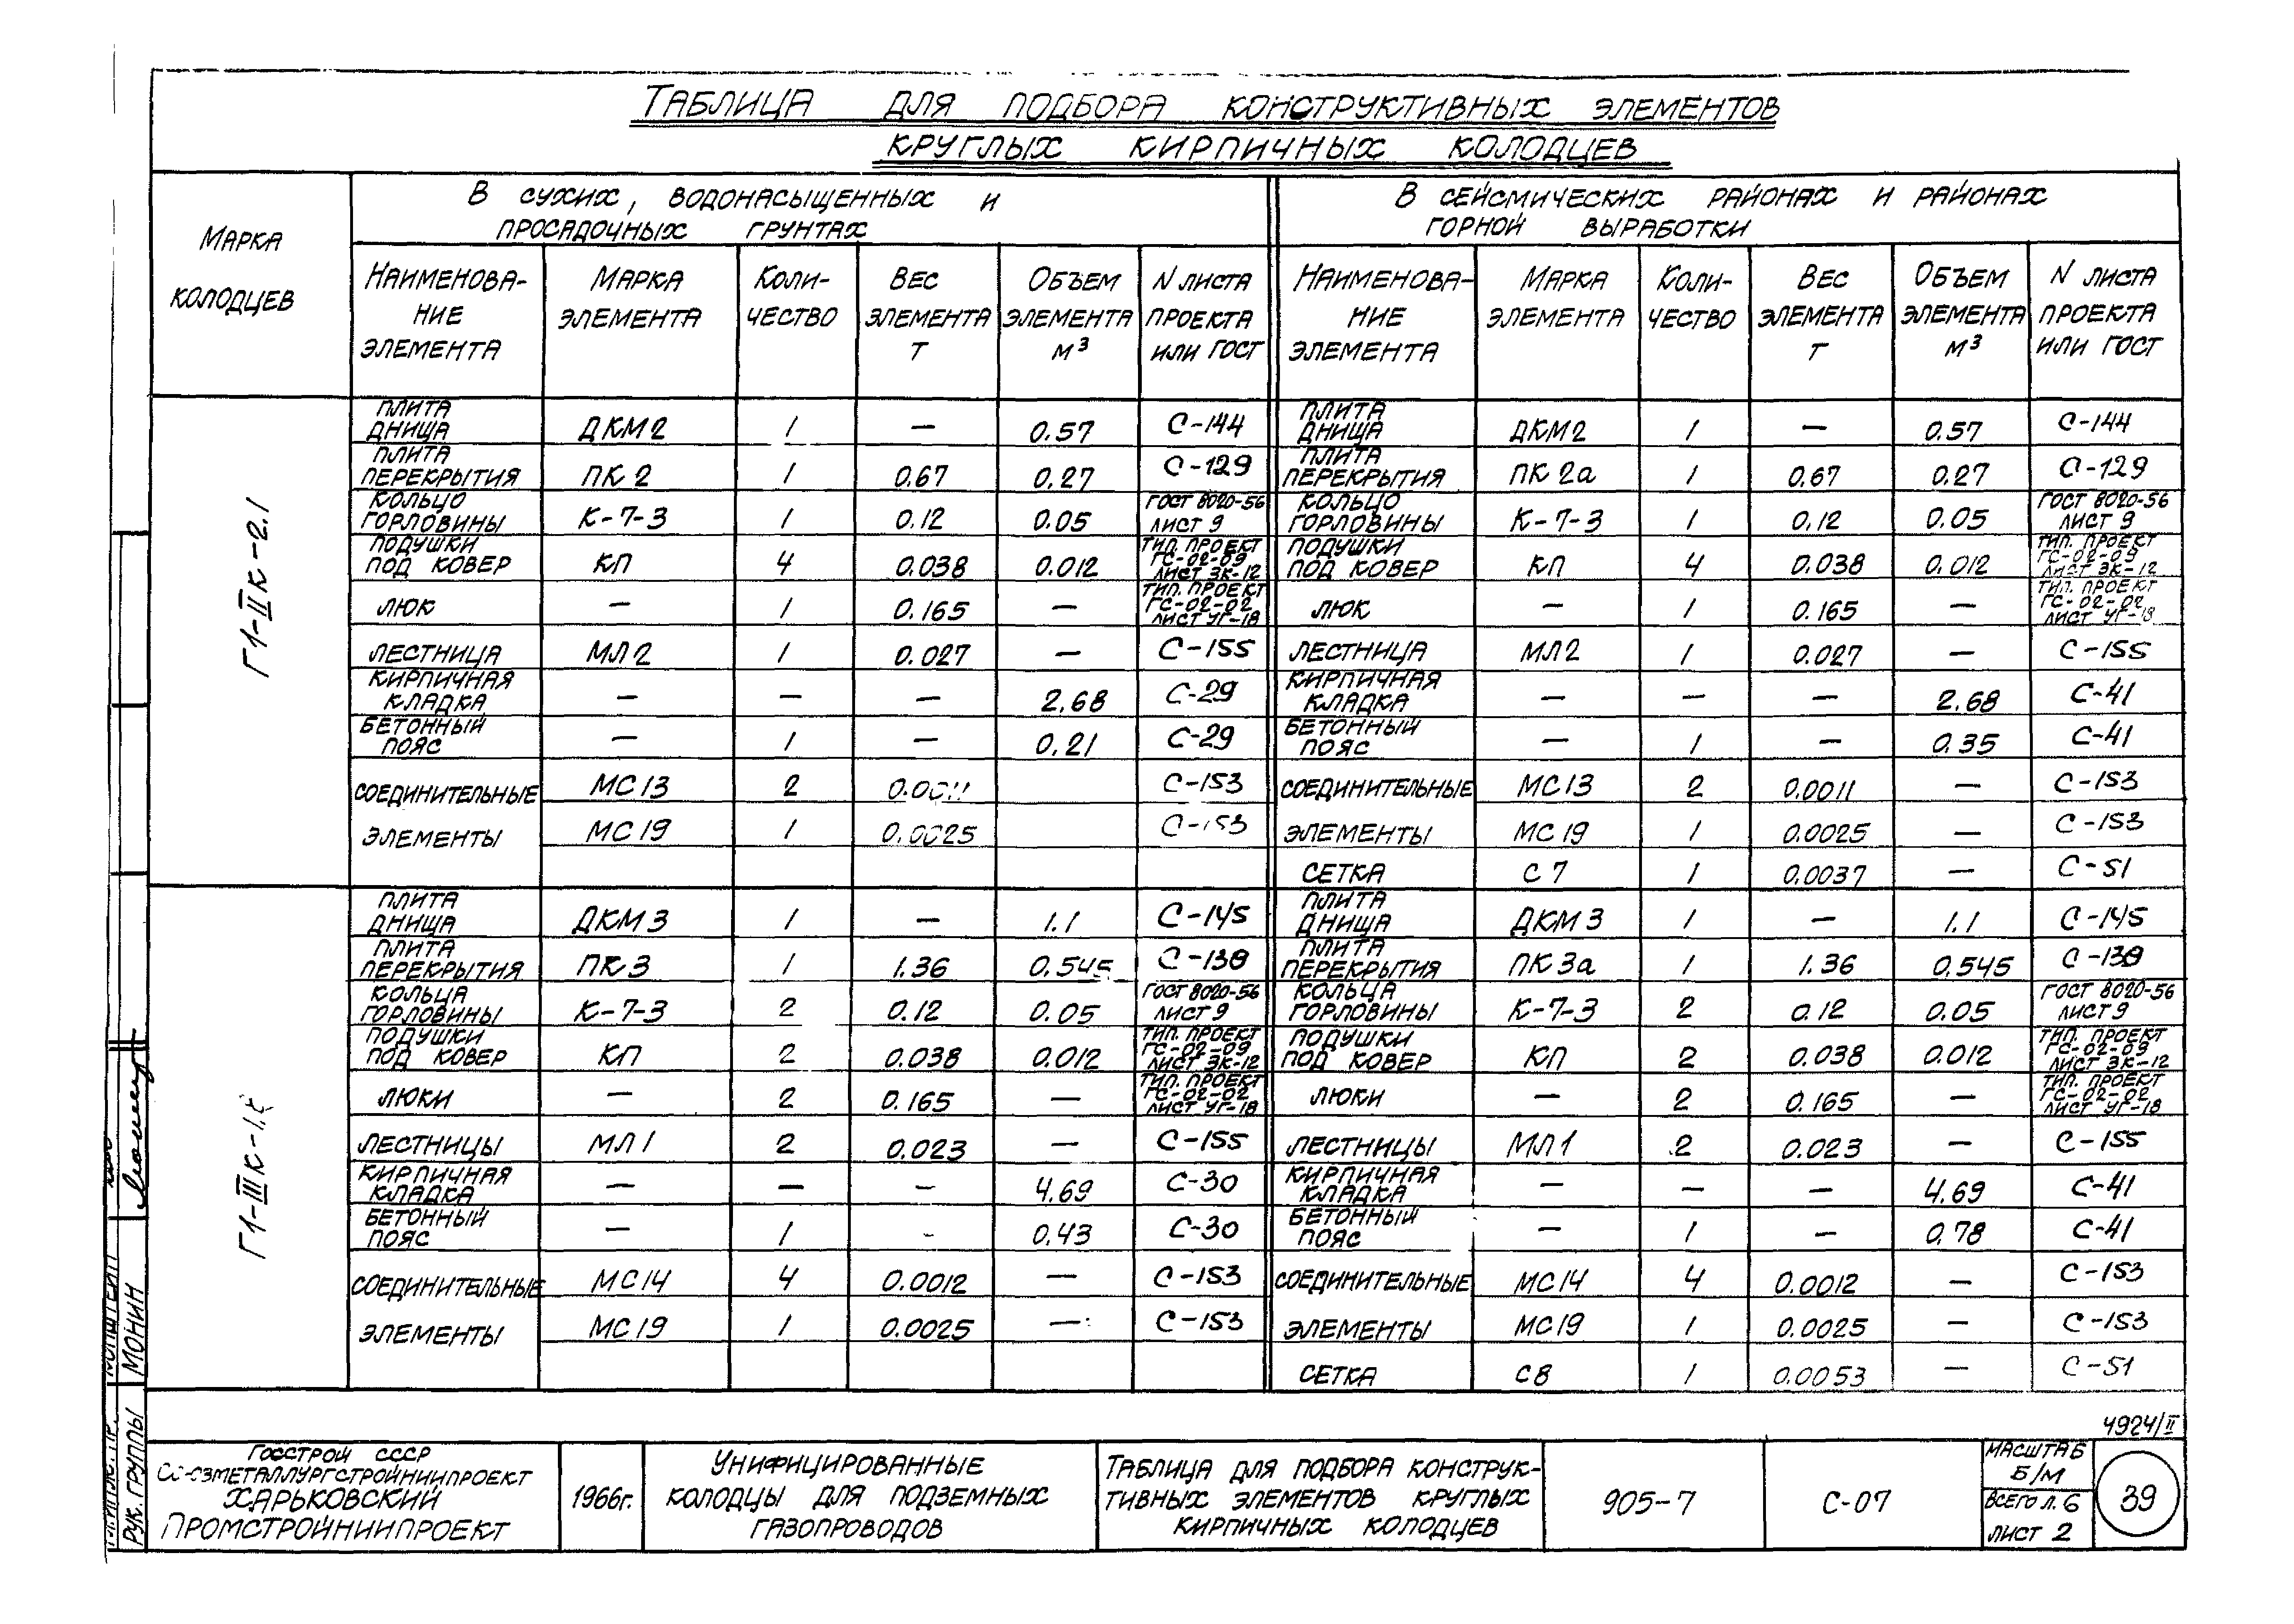 ТАБЛИЦА ДЛЯ ПОДБОРА КОНСТРУКТИВНЫХ ЭЛЕМЕНТОВ
КРУГЛЫХ КИРПИЧНЫХ КОЛОДЦЕВ
МАРКА КОЛОДЦЕВ
В СУХИХ, ВОДОНАСЫЩЕННЫХ И ПРОСАДОЧНЫХ ГРУНТАХ
В СЕЙСМИЧЕСКИХ РАЙОНАХ И РАЙОНАХ ГОРНОЙ ВЫРАБОТКИ
НАИМЕНОВА-НИЕ ЭЛЕМЕНТА МАРКА ЭЛЕМЕНТА КОЛИ-ЧЕСТВО ВЕС ЭЛЕМЕНТА Т ОБЪЕМ ЭЛЕМЕНТА М³ N ЛИСТА ПРОЕКТА ИЛИ ГОСТ НАИМЕНОВА-НИЕ ЭЛЕМЕНТА МАРКА ЭЛЕМЕНТА КОЛИ-ЧЕСТВО ВЕС ЭЛЕМЕНТА Т ОБЪЕМ ЭЛЕМЕНТА М³ N ЛИСТА ПРОЕКТА ИЛИ ГОСТ
Г1-IIК-2.1
ПЛИТА ДНИЩА ДКМ2 1 — 0.57 С-144 ПЛИТА ДНИЩА ДКМ2 1 — 0.57 С-144
ПЛИТА ПЕРЕКРЫТИЯ ПК2 1 0.67 0.27 С-129 ПЛИТА ПЕРЕКРЫТИЯ ПК2а 1 0.67 0.27 С-129
КОЛЬЦО ГОРЛОВИНЫ К-7-3 1 0.12 0.05 ГОСТ 8020-56 ЛИСТ 9 КОЛЬЦО ГОРЛОВИНЫ К-7-3 1 0.12 0.05 ГОСТ 8020-56 ЛИСТ 9
ПОДУШКИ ПОД КОВЕР КП 4 0.038 0.012 ТИП. ПРОЕКТ ГС-02-09 ЛИСТ ЗК-12 ПОДУШКИ ПОД КОВЕР КП 4 0.038 0.012 ТИП. ПРОЕКТ ГС-02-09 ЛИСТ ЗК-12
ЛЮК — 1 0.165 — ТИП. ПРОЕКТ ГС-02-02 ЛИСТ УГ-18 ЛЮК — 1 0.165 — ТИП. ПРОЕКТ ГС-02-02 ЛИСТ УГ-18
ЛЕСТНИЦА МЛ2 1 0.027 — С-155 ЛЕСТНИЦА МЛ2 1 0.027 — С-155
КИРПИЧНАЯ КЛАДКА — — — 2.68 С-29 КИРПИЧНАЯ КЛАДКА — — — 2.68 С-41
БЕТОННЫЙ ПОЯС — 1 — 0.21 С-29 БЕТОННЫЙ ПОЯС — 1 — 0.35 С-41
СОЕДИНИТЕЛЬНЫЕ МС13 2 0.0011 С-153 СОЕДИНИТЕЛЬНЫЕ МС13 2 0.0011 — С-153
ЭЛЕМЕНТЫ МС19 1 0.0025 С-153 ЭЛЕМЕНТЫ МС19 1 0.0025 — С-153
СЕТКА С7 1 0.0037 — С-51
Г1-IIIК-
ПЛИТА ДНИЩА ДКМ3 1 — 1.1 С-145 ПЛИТА ДНИЩА ДКМ3 1 — 1.1 С-145
ПЛИТА ПЕРЕКРЫТИЯ ПК3 1 1.36 0.545 ПЛИТА ПЕРЕКРЫТИЯ ПК3а 1 1.36 0.545
КОЛЬЦА ГОРЛОВИНЫ К-7-3 2 0.12 0.05 ГОСТ 8020-56 ЛИСТ 9 КОЛЬЦА ГОРЛОВИНЫ К-7-3 2 0.12 0.05 ГОСТ 8020-56 ЛИСТ 9
ПОДУШКИ ПОД КОВЕР КП 2 0.038 0.012 ТИП. ПРОЕКТ ГС-02-09 ЛИСТ ЗК-12 ПОДУШКИ ПОД КОВЕР КП 2 0.038 0.012 ТИП. ПРОЕКТ ГС-02-09 ЛИСТ ЗК-12
ЛЮКИ — 2 0.165 — ТИП. ПРОЕКТ ГС-02-02 ЛИСТ УГ-18 ЛЮКИ — 2 0.165 — ТИП. ПРОЕКТ ГС-02-02 ЛИСТ УГ-18
ЛЕСТНИЦЫ МЛ1 2 0.023 — С-155 ЛЕСТНИЦЫ МЛ1 2 0.023 — С-155
КИРПИЧНАЯ КЛАДКА — — — 4.69 С-30 КИРПИЧНАЯ КЛАДКА — — — 4.69 С-41
БЕТОННЫЙ ПОЯС — 1 - 0.43 С-30 БЕТОННЫЙ ПОЯС — 1 — 0.78 С-41
СОЕДИНИТЕЛЬНЫЕ МС14 4 0.0012 — С-153 СОЕДИНИТЕЛЬНЫЕ МС14 4 0.0012 — С-153
ЭЛЕМЕНТЫ МС19 1 0.0025 — С-153 ЭЛЕМЕНТЫ МС19 1 0.0025 — С-153
СЕТКА С8 1 0.0053 — С-51
4924/II
РУК. ГРУППЫ МОНИН
ГОССТРОЙ СССР
СОЮЗМЕТАЛЛУРГСТРОЙНИИПРОЕКТ
ХАРЬКОВСКИЙ
ПРОМСТРОЙНИИПРОЕКТ
1966г.
УНИФИЦИРОВАННЫЕ
КОЛОДЦЫ ДЛЯ ПОДЗЕМНЫХ
ГАЗОПРОВОДОВ
ТАБЛИЦА ДЛЯ ПОДБОРА КОНСТРУК-
ТИВНЫХ ЭЛЕМЕНТОВ КРУГЛЫХ
КИРПИЧНЫХ КОЛОДЦЕВ
905-7
С-07
МАСШТАБ
Б/М
ВСЕГО Л. 6
ЛИСТ 2
39